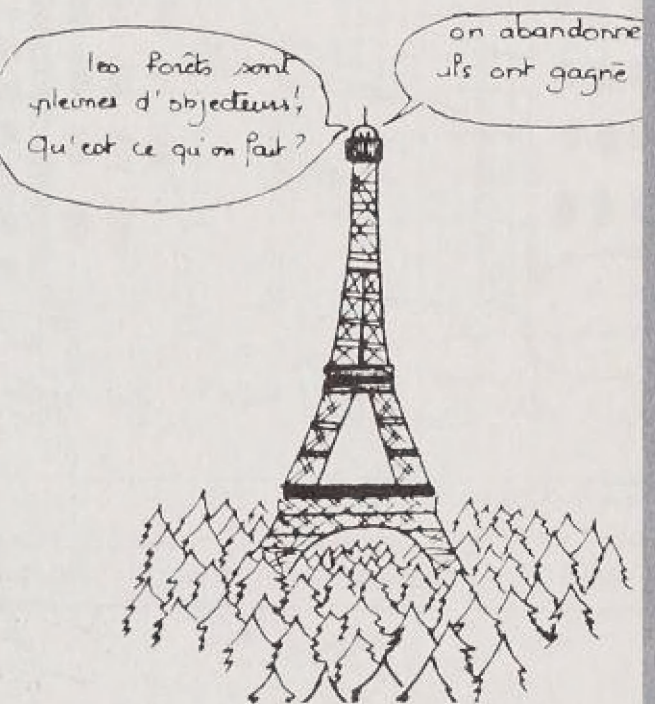 les forêts sont
pleines d'objecteurs!
Qu'est ce qu'on fait?
on abandonne
ils ont gagné